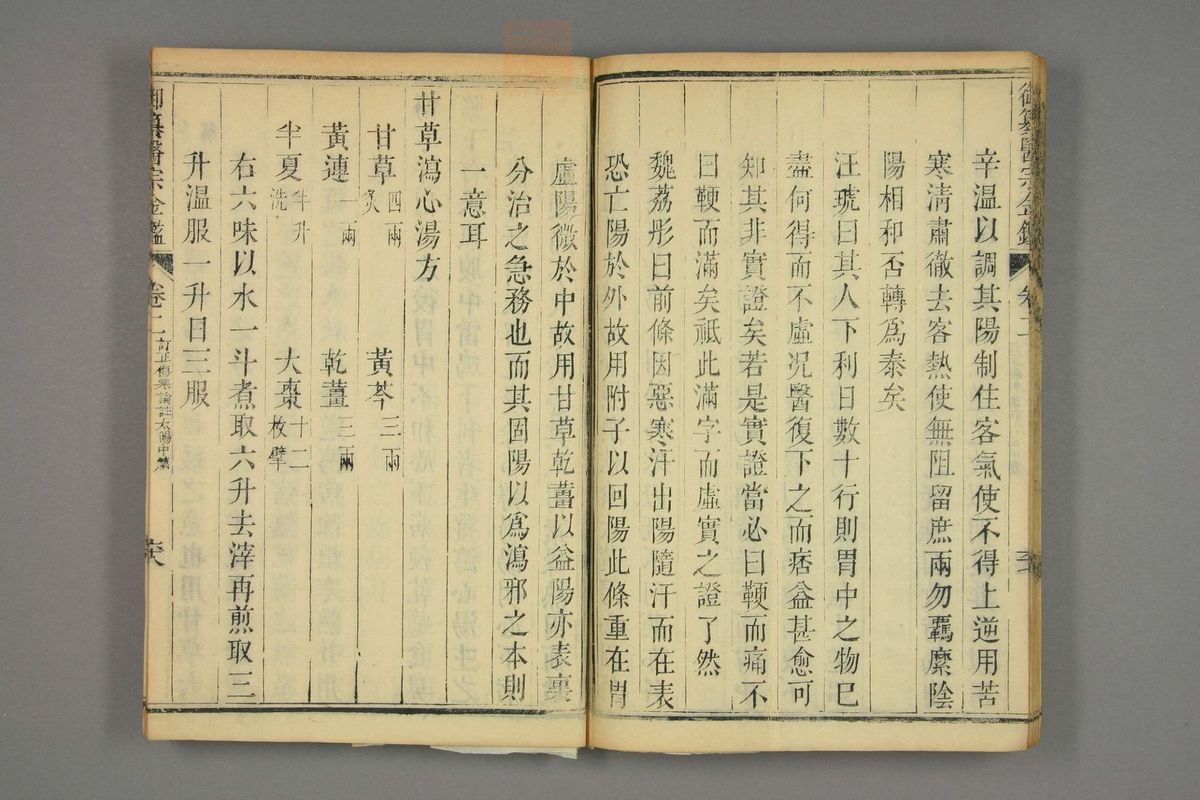 御纂醫宗金鑑 卷二
辛溫以調其陽制住客氣使不得上逆用苦
寒淸肅徹去客熱使無阻留庶兩勿羈縻陰
陽相和否轉爲泰矣
汪琥曰其人下利日數十行則胃中之物已
盡何得而不虛況醫復下之而痞益甚愈可
知其非實證矣若是實證當必曰鞕而痛不
曰鞕而滿矣祗此滿字而虛實之證了然
魏荔彤曰前條因惡寒汗出陽隨汗而在表
恐亡陽於外故用附子以回陽此條重在胃
虛陽微於中故用甘草乾薑以益陽亦表裏
分治之急務也而其固陽以爲瀉邪之本則
一意耳
甘草瀉心湯方
甘草四兩炙 黃芩三兩
黃連一兩 乾薑三兩
半夏半升洗 大棗十二枚擘
右六味以水一斗煮取六升去滓再煎取三
升溫服一升日三服
御纂醫宗金鑑 卷二 訂正傷寒論註太陽中篇